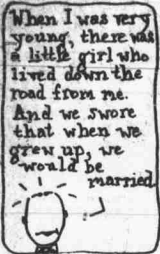 When I was very
young, there was
a little girl who
lived down the
road from me.
And we swore
that when we
grew up, we
would be
married.